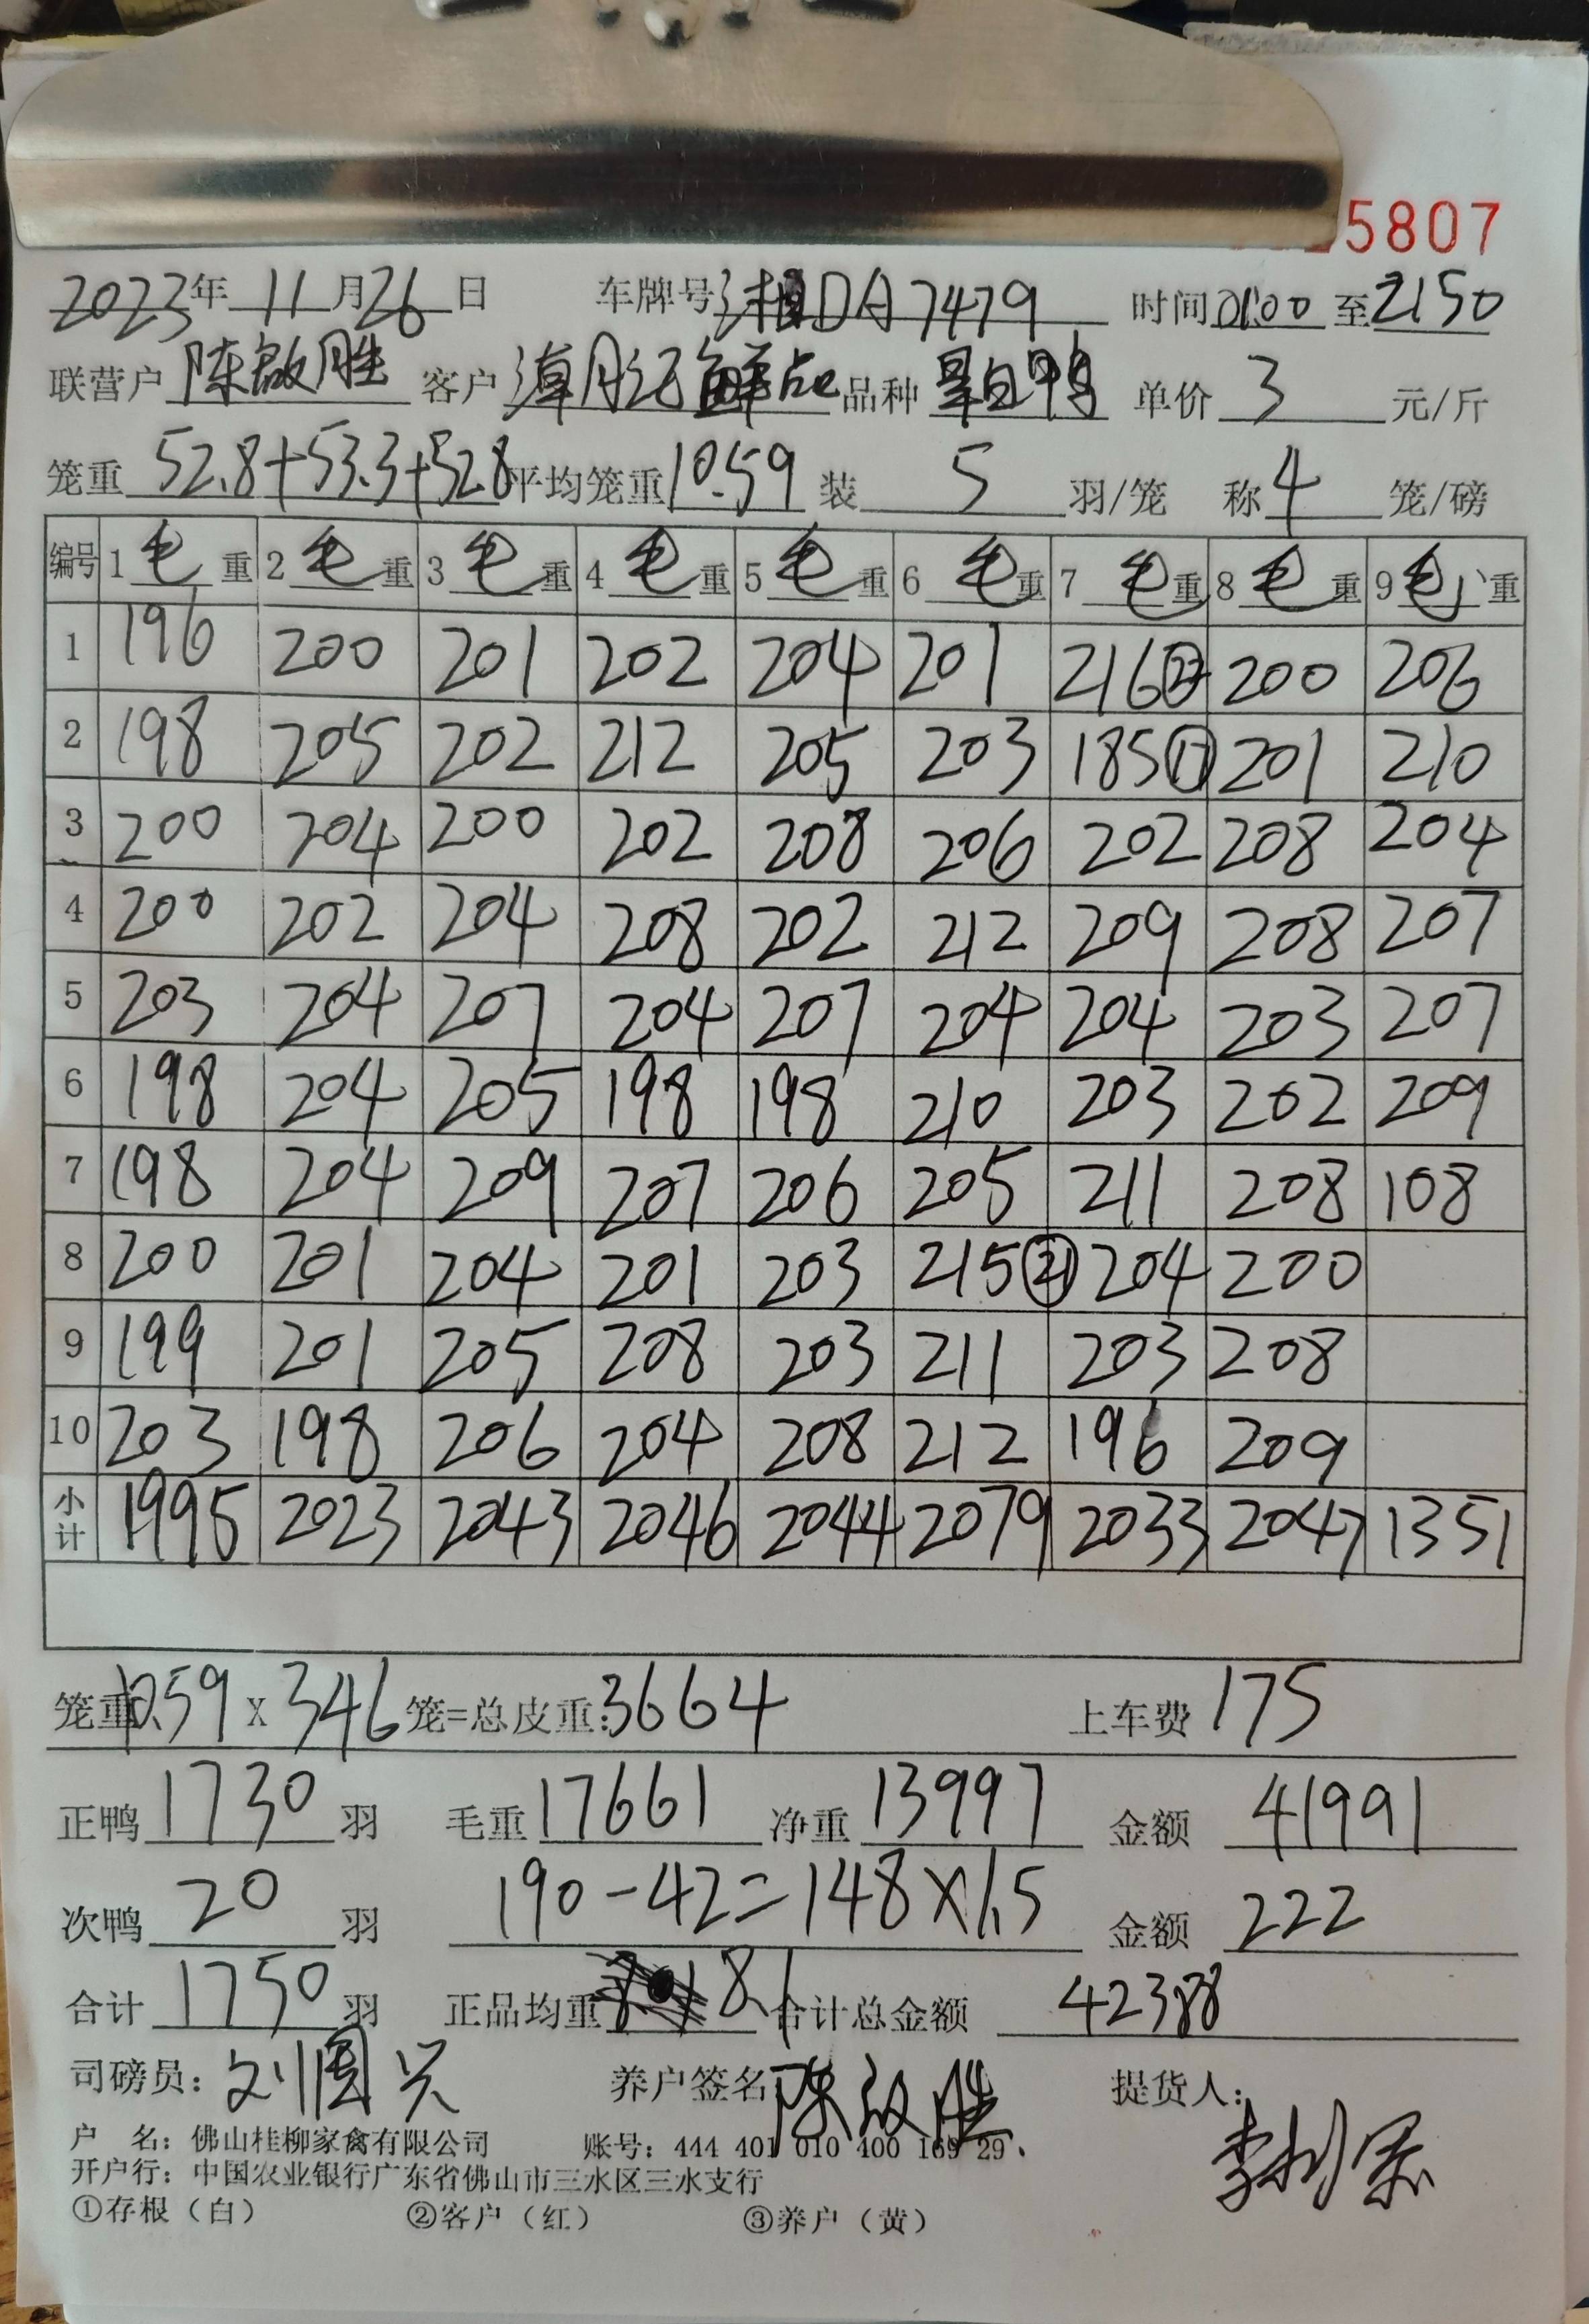 5807
2023年 11月26日 车牌号 湘DA7479 时间 01:00 至 2150
联营户 陈敬胜 客户 鲜品 品种 鸭 单价 3 元/斤
笼重 52.8+53.3+52.8 平均笼重 10.59 装 5 羽/笼 称 4 笼/磅
编号 1 毛 重 2 毛 重 3 毛 重 4 毛 重 5 毛 重 6 毛 重 7 毛 重 8 毛 重 9 毛 重
1 196 200 201 202 204 201 216 200 206
2 198 205 202 212 205 203 185 ⑰ 201 210
3 200 204 200 202 208 206 202 208 204
4 200 202 204 208 202 212 209 208 207
5 203 204 207 204 207 204 204 203 207
6 198 204 205 198 198 210 203 202 209
7 198 204 209 207 206 205 211 208 108
8 200 201 204 201 203 215 ㉑ 204 200
9 199 201 205 208 203 211 203 208
10 203 198 206 204 208 212 196 209
小计 1995 2023 2043 2046 2044 2079 2033 2047 1351
笼重 10.59 x 346 笼=总皮重: 3664 上车费 175
正鸭 1730 羽 毛重 17661 净重 13997 金额 41991
次鸭 20 羽 190-42=148×1.5 金额 222
合计 1750 羽 正品均重 8.1 合计总金额 42388
司磅员: 刘国兴 养户签名 陈敬胜 提货人:
户 名: 佛山桂柳家禽有限公司 账号: 444 401 010 400 169 29
开户行: 中国农业银行广东省佛山市三水区三水支行
①存根（白） ②客户（红） ③养户（黄）